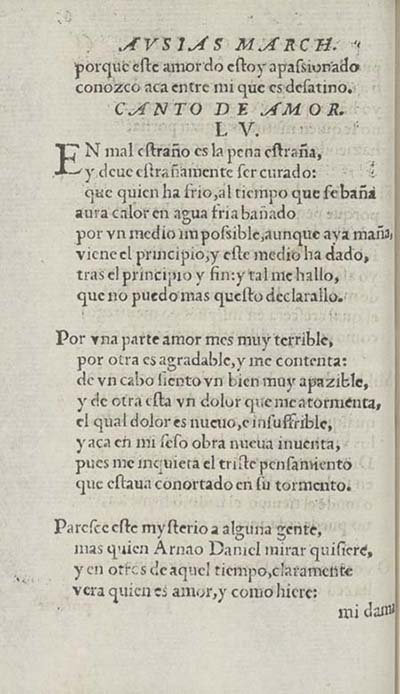 AVSIAS MARCH.
porque este amor do estoy apassionado
conozco aca entre mi que es desatino.
CANTO DE AMOR.
LV.
EN mal estraño es la pena estraña,
y deue estrañamente ser curado:
que quien ha frio, al tiempo que se baña
aura calor en agua fria bañado
por vn medio impossible, aunque aya maña,
viene el principio, y este medio ha dado,
tras el principio y fin: y tal me hallo,
que no puedo mas questo declarallo.
Por vna parte amor mes muy terrible,
por otra es agradable, y me contenta:
de vn cabo siento vn bien muy apazible,
y de otra esta vn dolor que me atormenta,
el qual dolor es nueuo, e insuffrible,
y aca en mi seso obra nueua inuenta,
pues me inquieta el triste pensamiento
que estaua conortado en su tormento.
Paresce este mysterio a alguna gente,
mas quien Arnao Daniel mirar quisiere,
y en otros de aquel tiempo, claramente
vera quien es amor, y como hiere:
mi dama